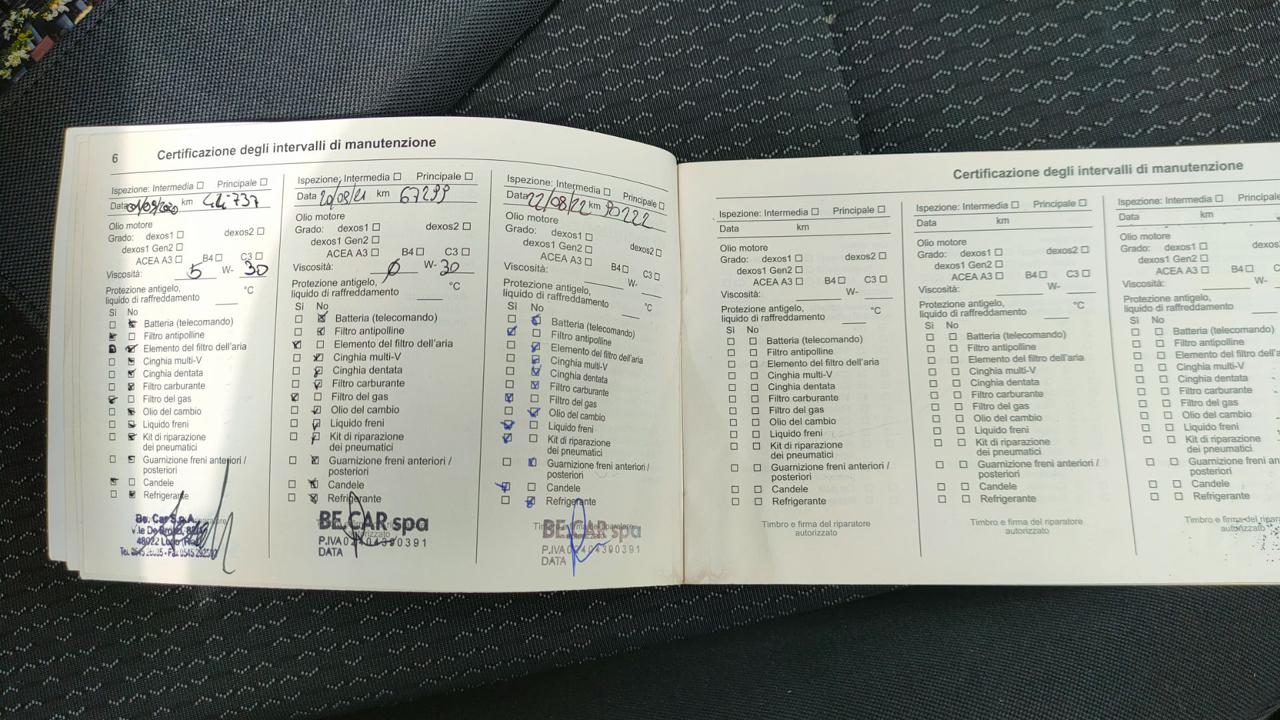 6 Certificazione degli intervalli di manutenzione
Ispezione: Intermedia ☐ Principale ☐
Data 01/09/2020 km 44.737
Olio motore
Grado: dexos1 ☐ dexos2 ☐
dexos1 Gen2 ☐
ACEA A3 ☐ B4 ☐ C3 ☐
Viscosità: 5 W- 30
Protezione antigelo,
liquido di raffreddamento °C
Sì No
Batteria (telecomando)
Filtro antipolline
Elemento del filtro dell'aria
Cinghia multi-V
Cinghia dentata
Filtro carburante
Filtro del gas
Olio del cambio
Liquido freni
Kit di riparazione
dei pneumatici
Guarnizione freni anteriori /
posteriori
Candele
Refrigerante
Be. Car S.p.A.
Ispezione: Intermedia ☐ Principale ☐
Data 20/08/21 km 67299
Olio motore
Grado: dexos1 ☐ dexos2 ☐
dexos1 Gen2 ☐
ACEA A3 ☐ B4 ☐ C3 ☐
Viscosità: 0 W- 30
Protezione antigelo,
liquido di raffreddamento °C
Sì No
Batteria (telecomando)
Filtro antipolline
Elemento del filtro dell'aria
Cinghia multi-V
Cinghia dentata
Filtro carburante
Filtro del gas
Olio del cambio
Liquido freni
Kit di riparazione
dei pneumatici
Guarnizione freni anteriori /
posteriori
Candele
Refrigerante
BE CAR spa
P.IVA 02404390391
DATA
Ispezione: Intermedia ☐ Principale ☐
Data 22/08/22 km 90222
Olio motore
Grado: dexos1 ☐ dexos2 ☐
dexos1 Gen2 ☐
ACEA A3 ☐ B4 ☐ C3 ☐
Viscosità: W-
Protezione antigelo,
liquido di raffreddamento °C
Sì No
Batteria (telecomando)
Filtro antipolline
Elemento del filtro dell'aria
Cinghia multi-V
Cinghia dentata
Filtro carburante
Filtro del gas
Olio del cambio
Liquido freni
Kit di riparazione
dei pneumatici
Guarnizione freni anteriori /
posteriori
Candele
Refrigerante
BE CAR spa
P.IVA 02404390391
DATA
Certificazione degli intervalli di manutenzione
Ispezione: Intermedia ☐ Principale ☐
Data km
Olio motore
Grado: dexos1 ☐ dexos2 ☐
dexos1 Gen2 ☐
ACEA A3 ☐ B4 ☐ C3 ☐
Viscosità: W-
Protezione antigelo,
liquido di raffreddamento °C
Sì No
Batteria (telecomando)
Filtro antipolline
Elemento del filtro dell'aria
Cinghia multi-V
Cinghia dentata
Filtro carburante
Filtro del gas
Olio del cambio
Liquido freni
Kit di riparazione
dei pneumatici
Guarnizione freni anteriori /
posteriori
Candele
Refrigerante
Timbro e firma del riparatore
autorizzato
Ispezione: Intermedia ☐ Principale ☐
Data km
Olio motore
Grado: dexos1 ☐ dexos2 ☐
dexos1 Gen2 ☐
ACEA A3 ☐ B4 ☐ C3 ☐
Viscosità: W-
Protezione antigelo,
liquido di raffreddamento °C
Sì No
Batteria (telecomando)
Filtro antipolline
Elemento del filtro dell'aria
Cinghia multi-V
Cinghia dentata
Filtro carburante
Filtro del gas
Olio del cambio
Liquido freni
Kit di riparazione
dei pneumatici
Guarnizione freni anteriori /
posteriori
Candele
Refrigerante
Timbro e firma del riparatore
autorizzato
Ispezione: Intermedia ☐ Principale
Data km
Olio motore
Grado: dexos1 ☐
dexos1 Gen2 ☐
ACEA A3 ☐ B4 ☐
Viscosità: W-
Protezione antigelo,
liquido di raffreddamento
Sì No
Batteria (telecomando)
Filtro antipolline
Elemento del filtro dell'a
Cinghia multi-V
Cinghia dentata
Filtro carburante
Filtro del gas
Olio del cambio
Liquido freni
Kit di riparazione
dei pneumatici
Guarnizione freni anteri
posteriori
Candele
Refrigerante
Timbro e firma del riparat
autorizzato